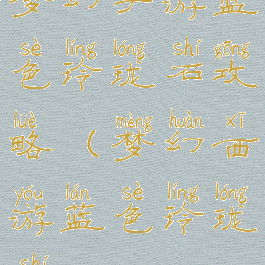 梦幻手游蓝
sè líng lóng shí gōng
色玲珑石攻
lüè mèng huàn xī
略(梦幻西
yóu lán sè líng lóng
游蓝色玲珑
shí